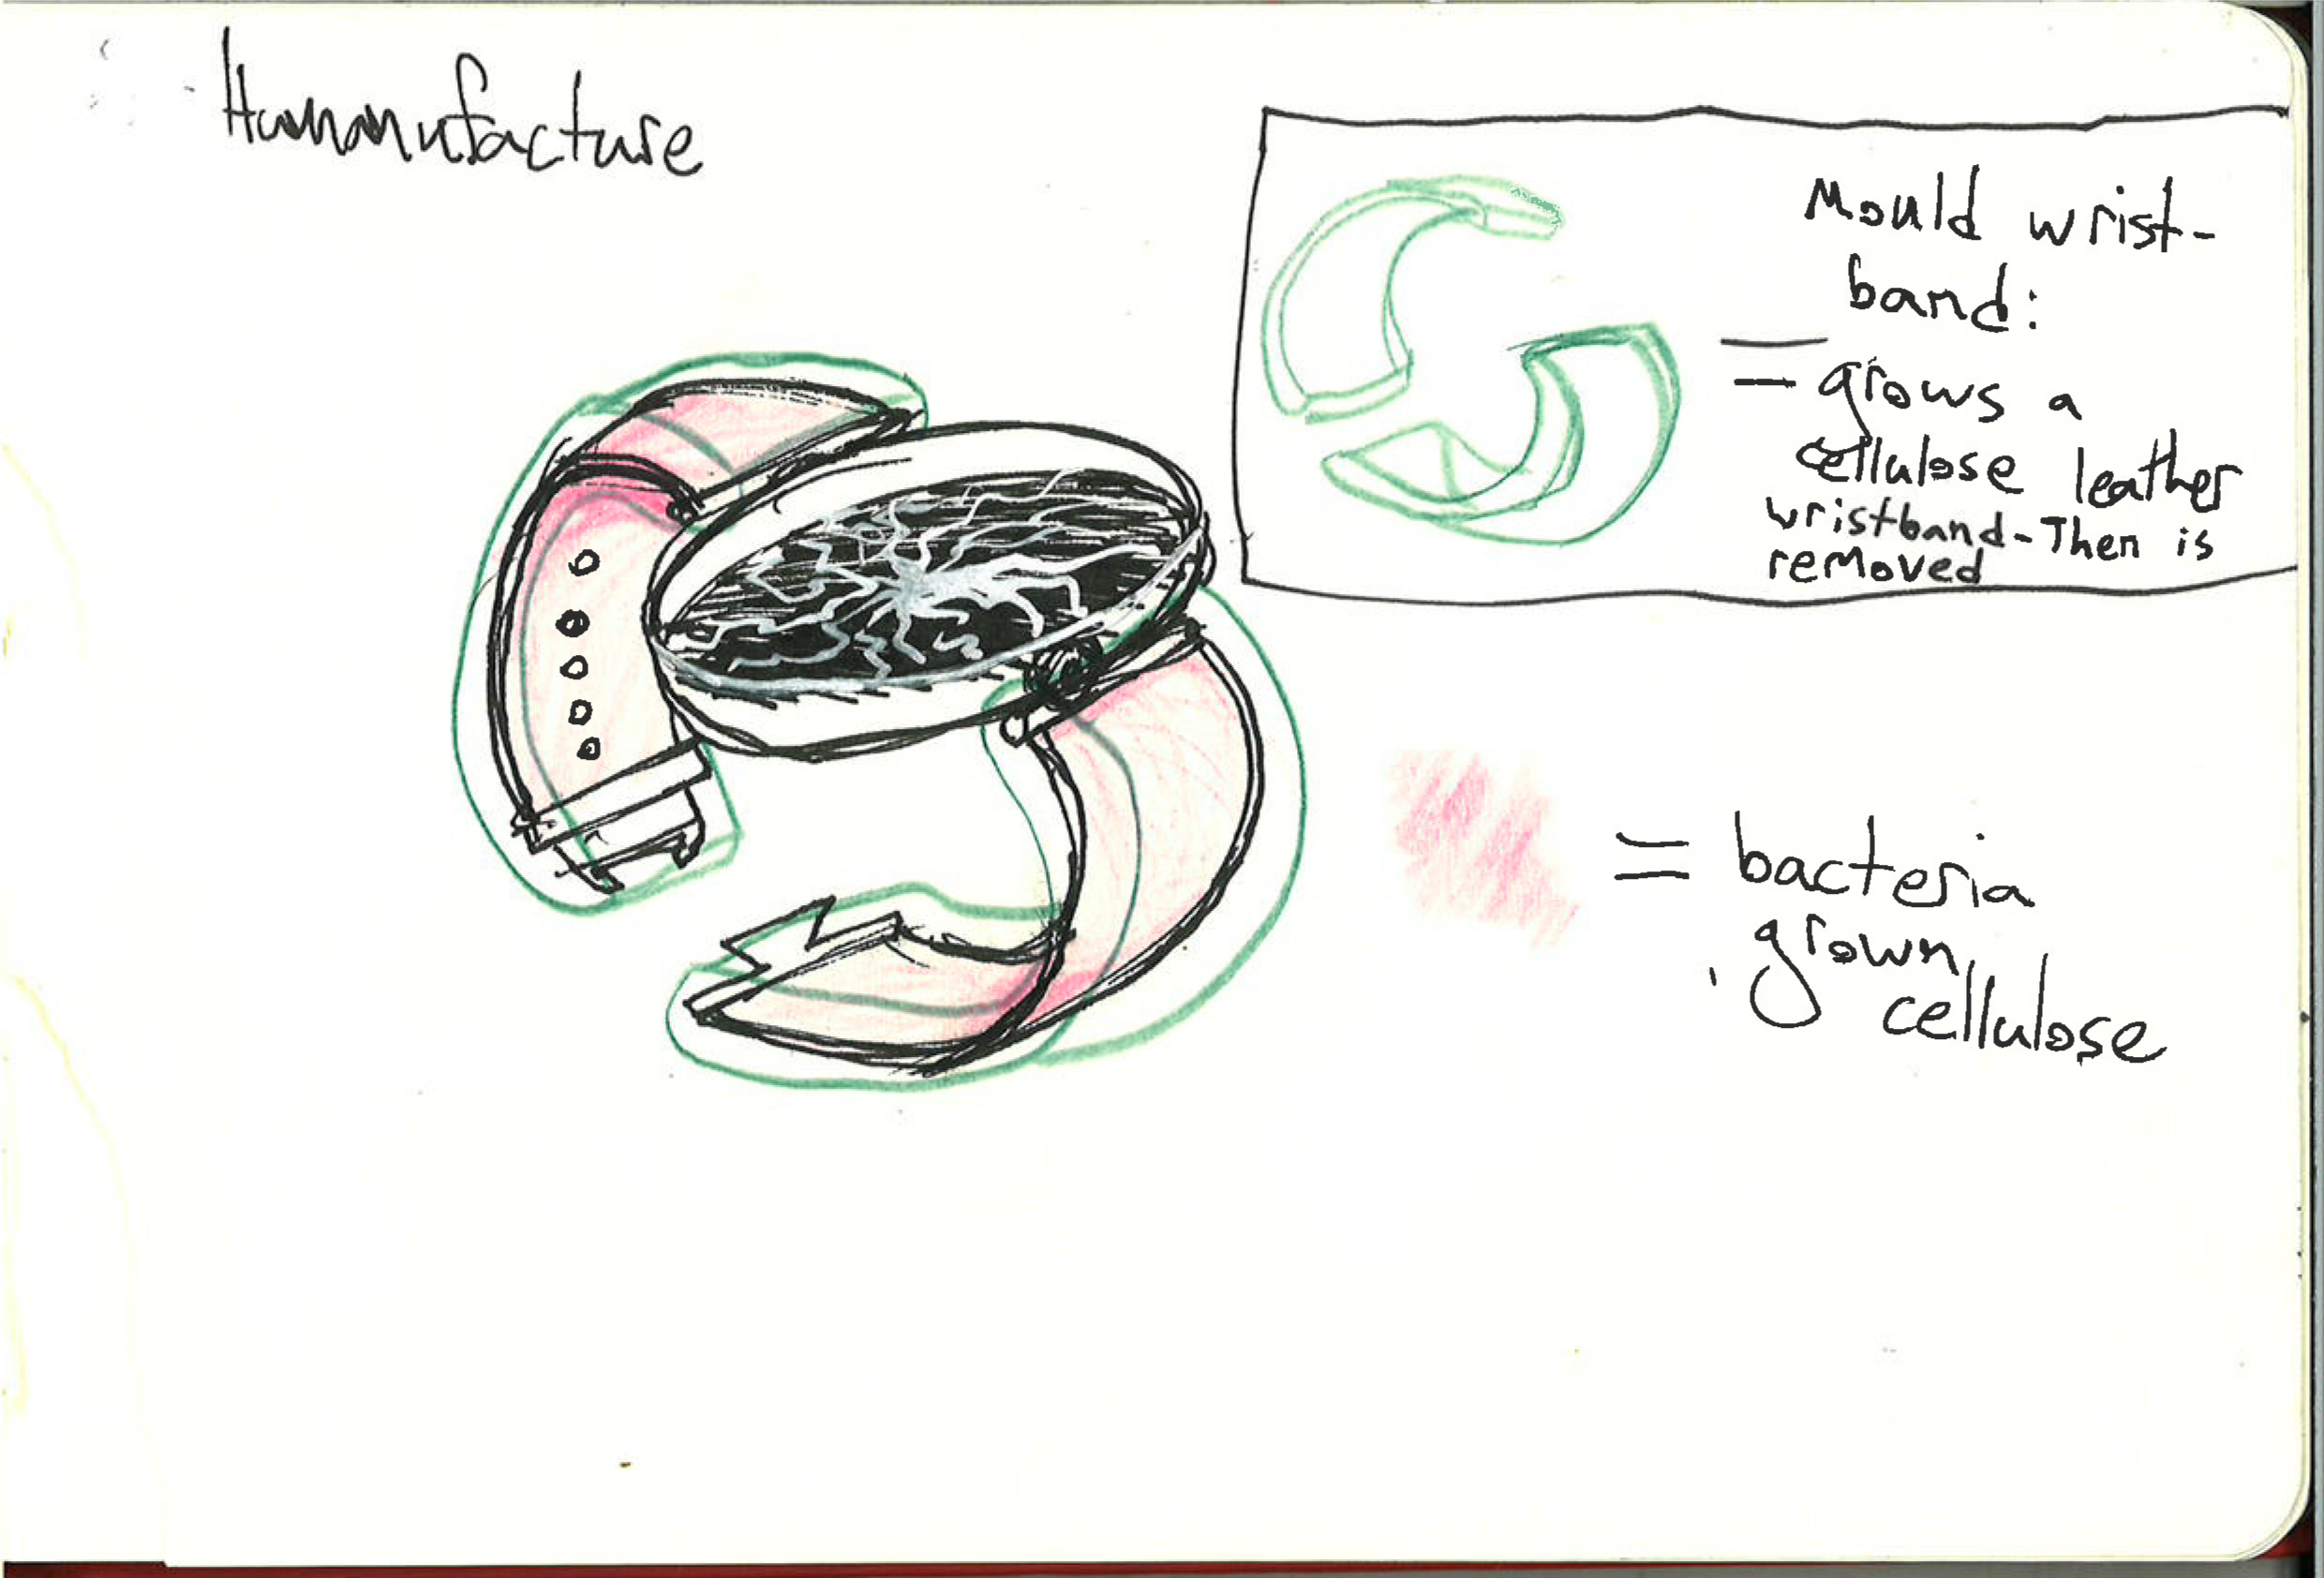 Humanufacture
Mould wrist-
band:
= grows a
cellulose leather
wristband-Then is
removed
= bacteria
grown
cellulose